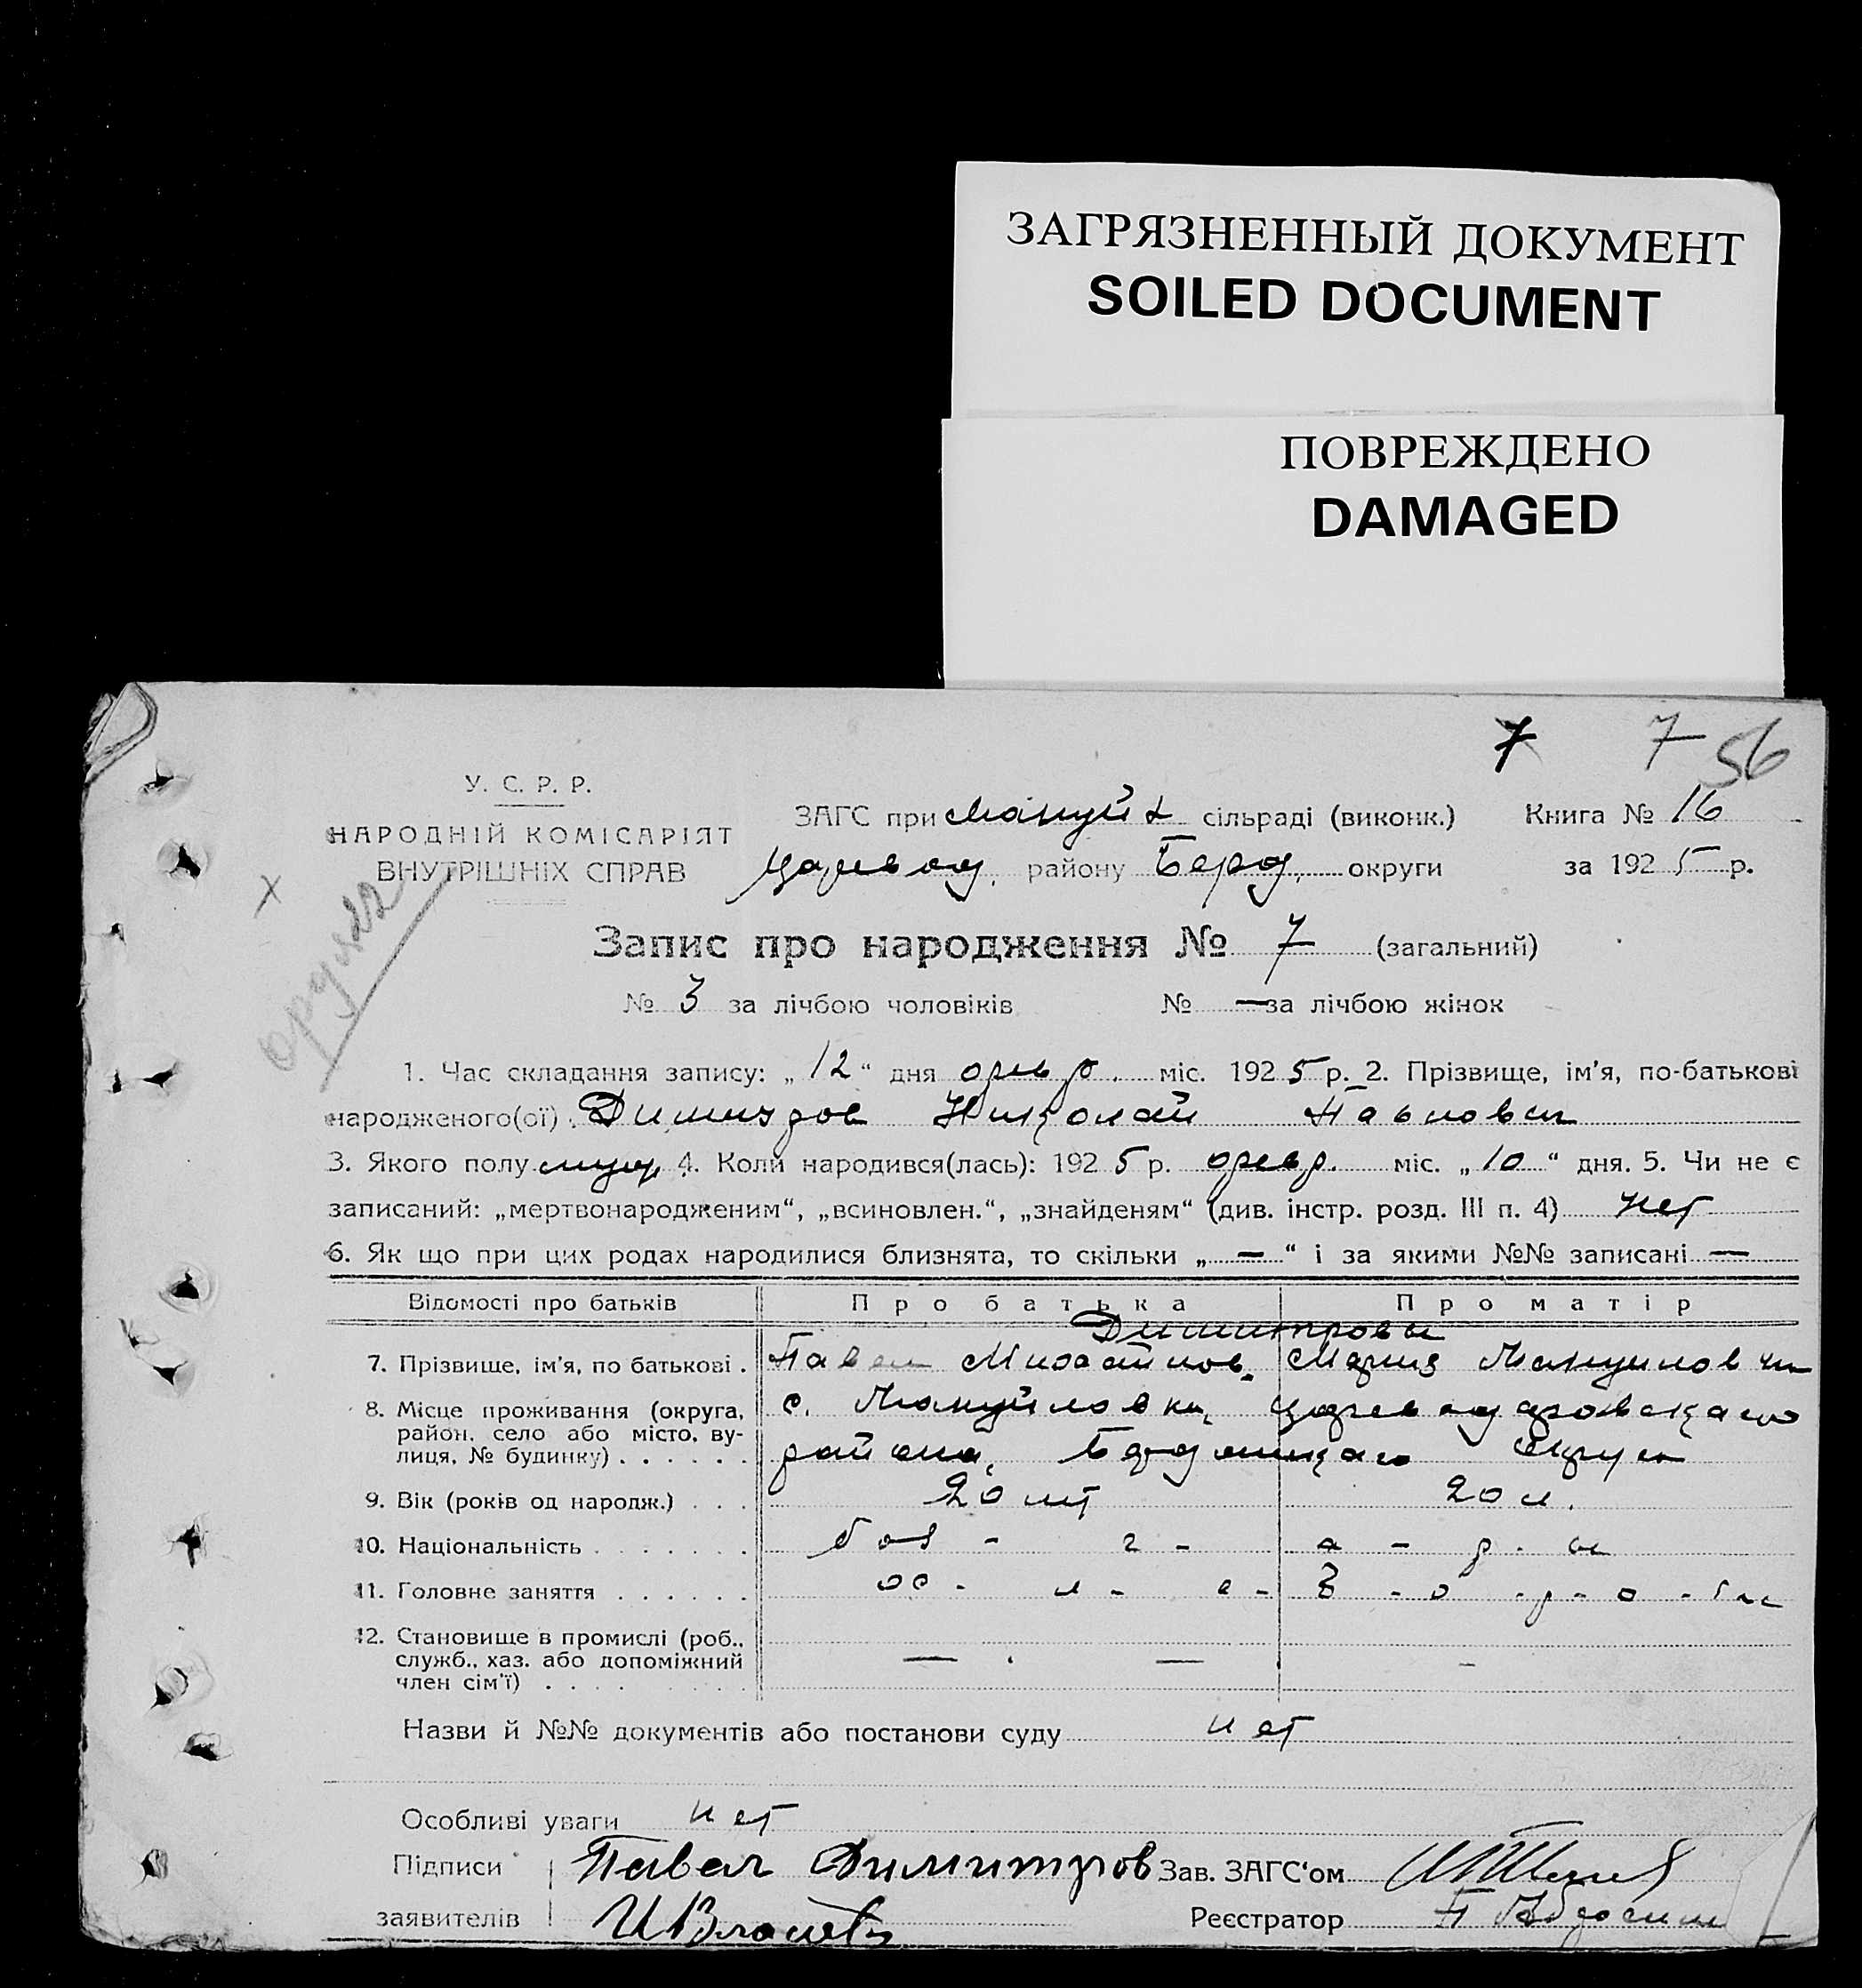 ЗАГРЯЗНЕННЫЙ ДОКУМЕНТ
SOILED DOCUMENT
ПОВРЕЖДЕНО
DAMAGED
7 7 56
У. С. Р. Р.
НАРОДНІЙ КОМІСАРІЯТ
ВНУТРІШНІХ СПРАВ
ЗАГС при Мануйл сільраді (виконк.) Книга № 16
Царевод. району Берд. округи за 1925 р.
Запис про народження № 7 (загальний)
№ 3 за лічбою чоловіків № — за лічбою жінок
1. Час складання запису: „ 12 “ дня февр. міс. 1925 р. 2. Прізвище, ім’я, по-батькові
народженого(ої) Димитров Николай Павлович
3. Якого полу муж. 4. Коли народився(лась): 1925 р. февр. міс. „ 10 “ дня. 5. Чи не є
записаний: „мертвонародженим“, „всиновлен.“, „знайденям“ (див. інстр. розд. III п. 4) нет
6. Як що при цих родах народилися близнята, то скільки „ — “ і за якими №№ записані —
Відомості про батьків Про батька Про матір
Димитровы
7. Прізвище, ім’я, по батькові . Павел Мария
8. Місце проживання (округа, район, село або місто, вулиця, № будинку) . . . . . . с. Мануйловки, Цареводаровскаго
района, Бердянскаго округа
9. Вік (років од народж.) . . . 20 лет 20 л.
10. Національність . . . . . . . бол - г - а - р - ы
11. Головне заняття . . . . . .
12. Становище в промислі (роб.,
служб., хаз. або допоміжний
член сім’ї) . . . . — . — -
Назви й №№ документів або постанови суду нет
Особливі уваги нет
Підписи Павел Димитров Зав. ЗАГС‘ом
заявителів Реєстратор